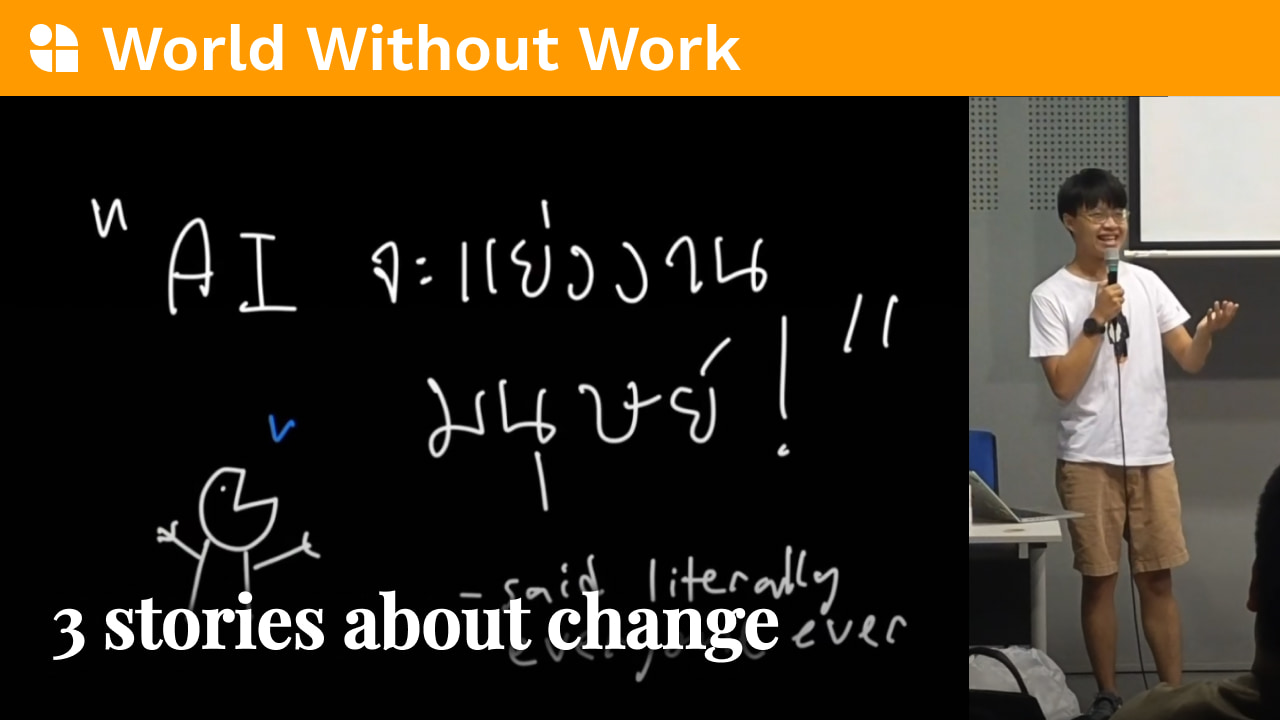 World Without Work
"AI จะแย่งงาน
มนุษย์!"
- said literally
everyone ever
3 stories about change